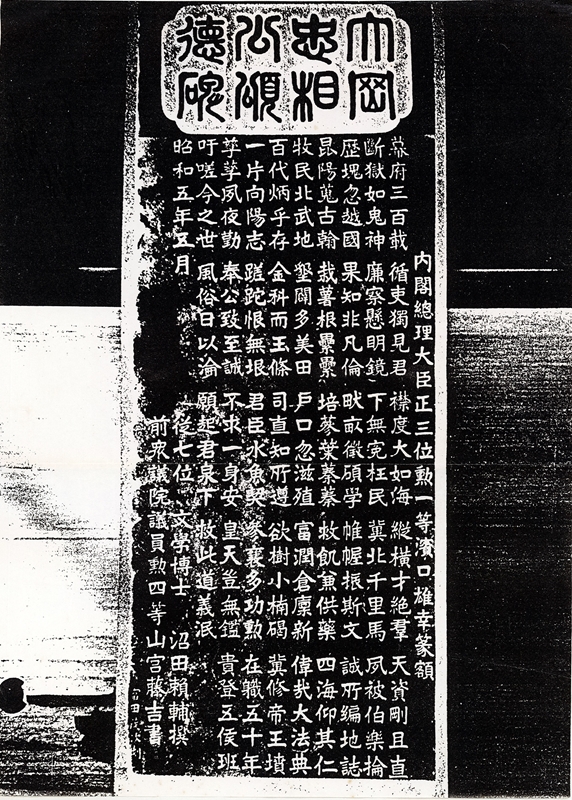 大岡
忠相
公頌
德碑
內閣總理大臣正三位勲一等濱口雄幸篆額
幕府三百載 循吏獨見君 襟度大如海 縱橫才絶羣 天資剛且直
斷獄如鬼神 廉察懸明鏡 下無寃枉民 冀北千里馬 夙被伯樂掄
歴塊忽越國 果知非凡倫 畎畝徵碩學 帷幄振斯文 誠所編地誌
昆陽蒐古翰 栽薯根纍纍 培蔘葉蓁蓁 救飢兼供藥 四海仰其仁
牧民北武地 墾闢多美田 戶口忽滋殖 富潤倉廩新 偉哉大法典
百代炳乎存 金科而玉條 司直知所遵 欲樹小楠碣 冀修帝王墳
一片向陽志 蹉跎恨無垠 君臣水魚契 參襄多功勲 在職五十年
孳孳夙夜勤 奉公致至誠 不求一身安 皇天豈無鑑 貴登五侯班
吁嗟今之世 風俗日以淪 願起君泉下 救此道義泯
昭和五年五月
從七位 文學博士 沼田頼輔撰
前衆議院議員勲四等山宮藤吉書